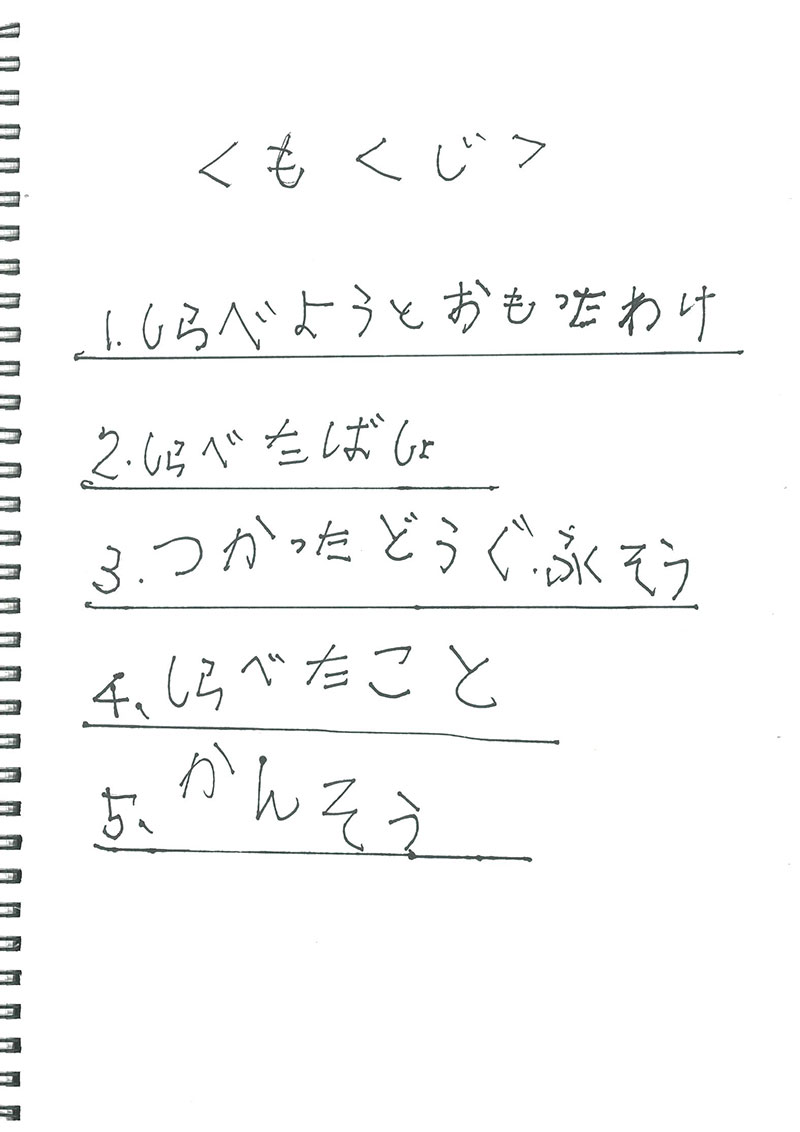 <もくじ>
1.しらべようとおもったわけ
2.しらべたばしょ
3.つかったどうぐ.ふくそう
4、しらべたこと
5、かんそう